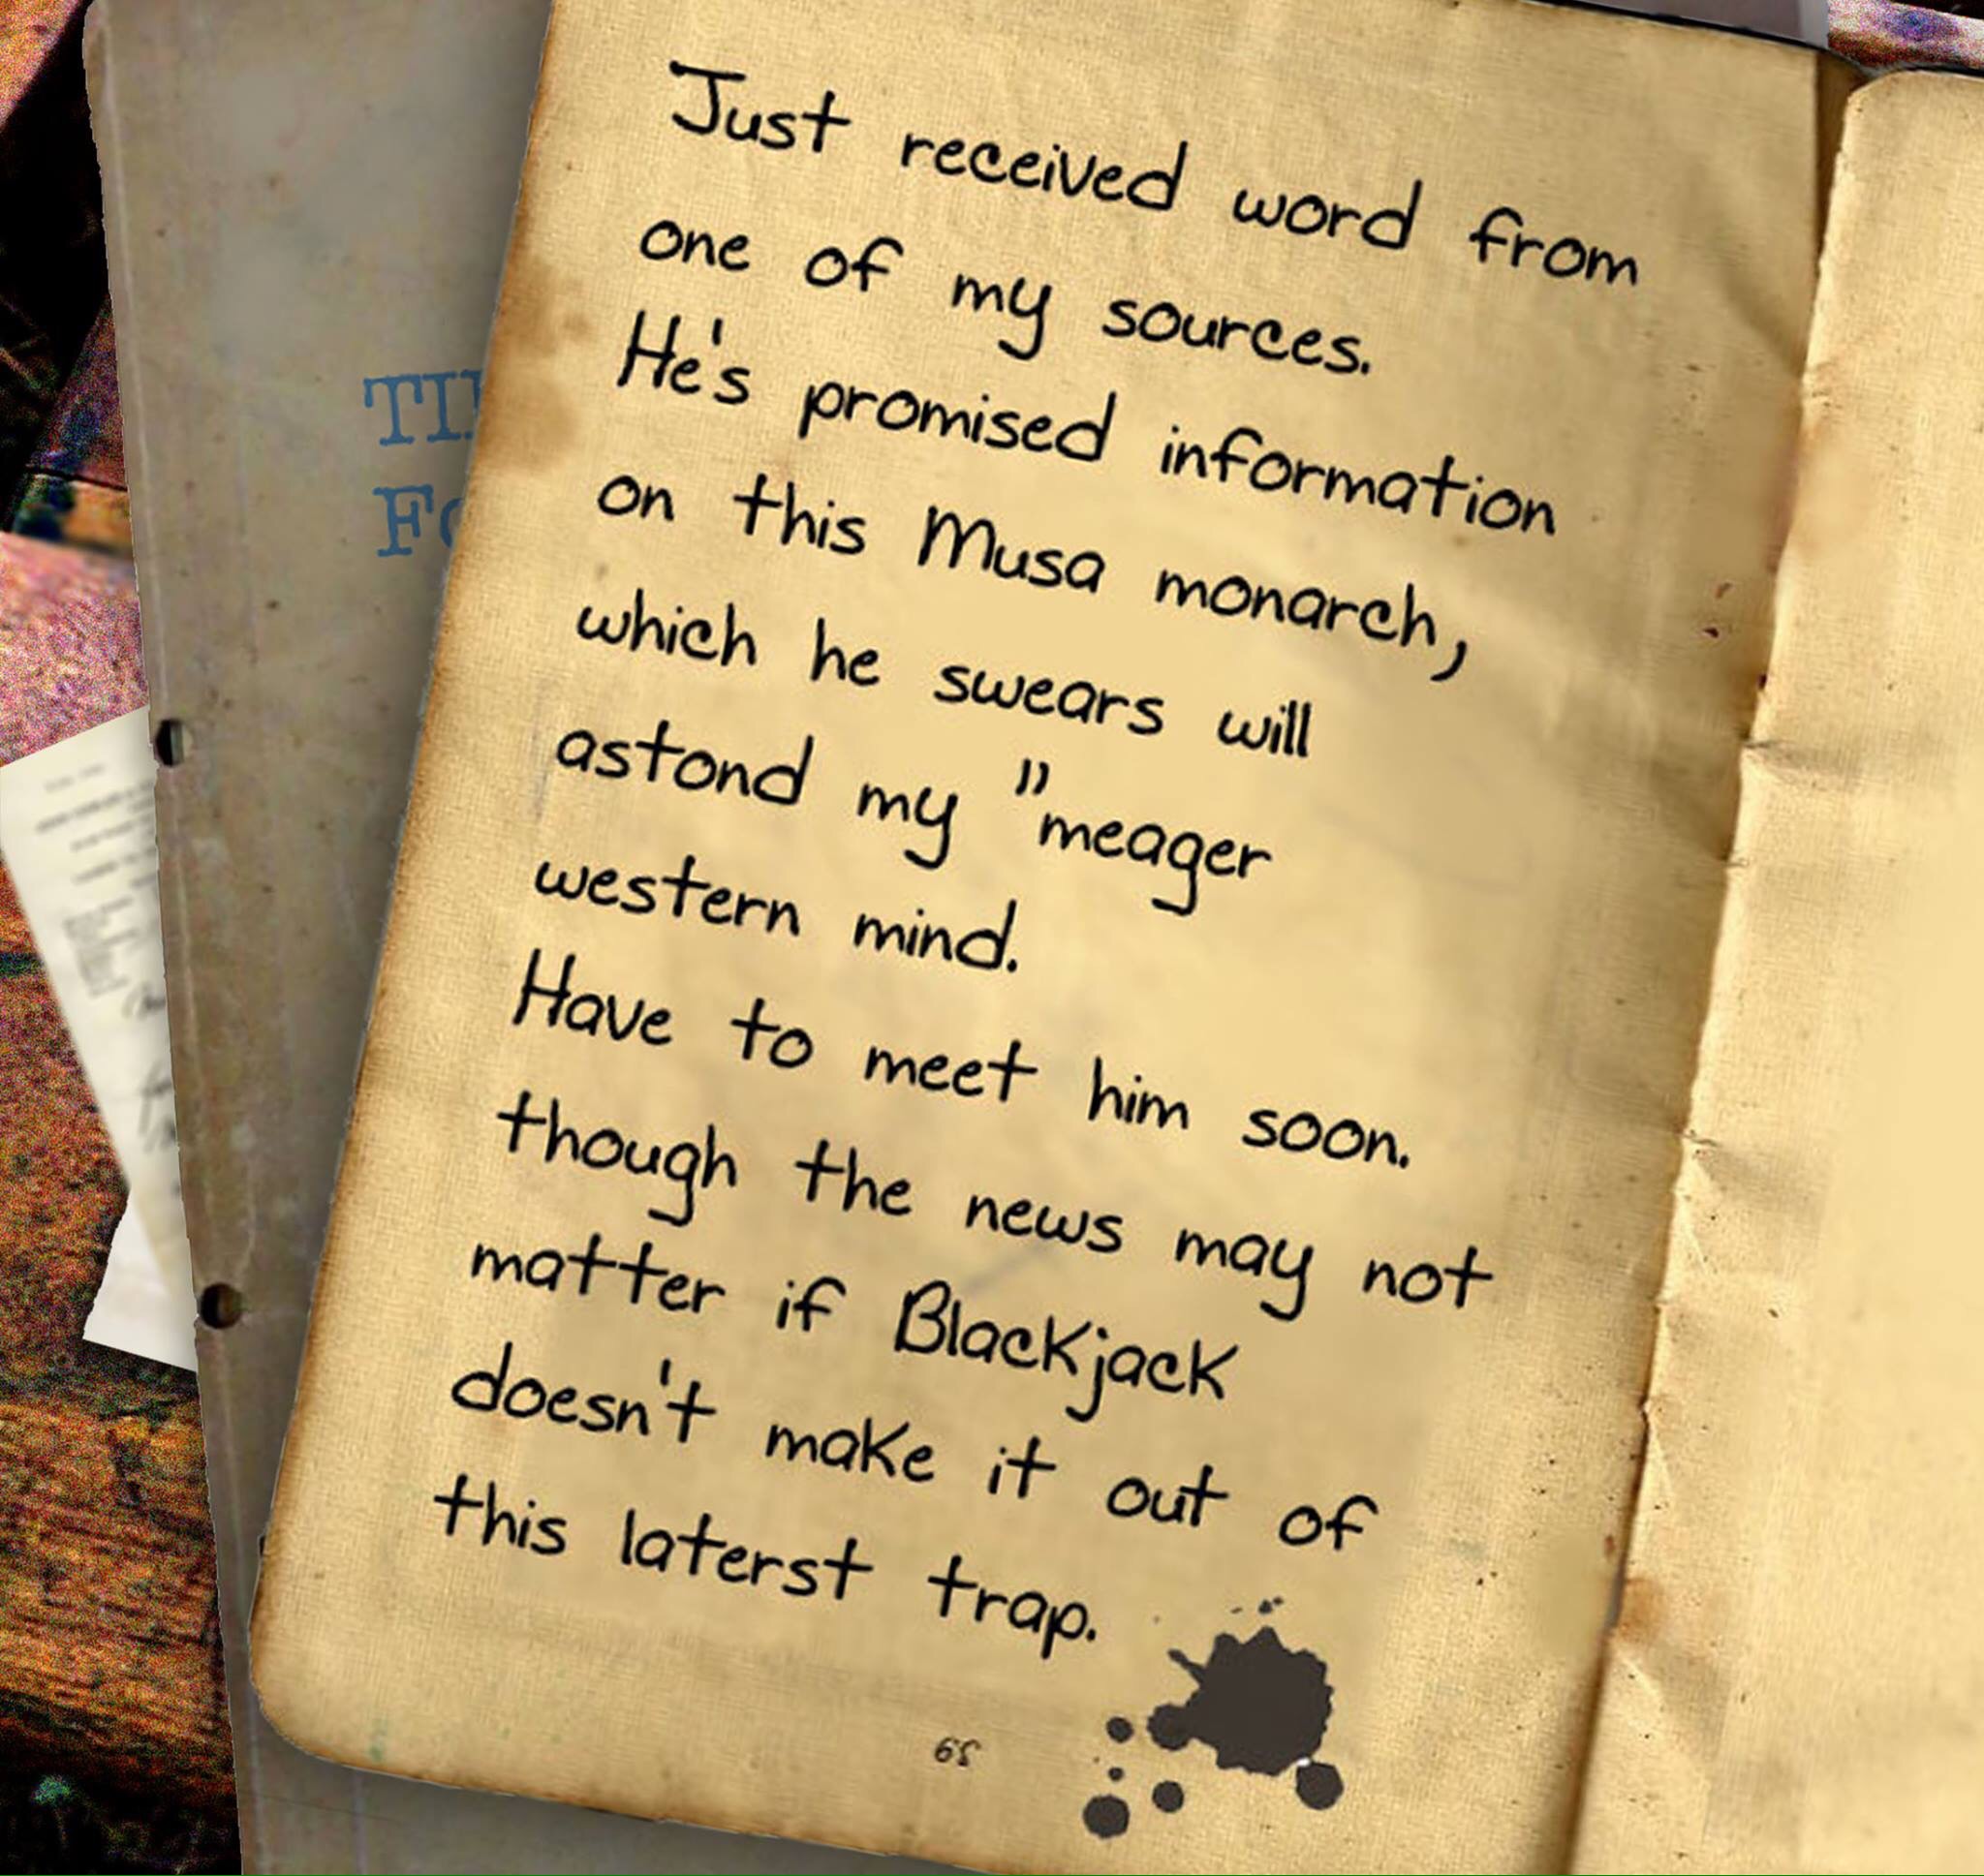 Just received word from
one of my sources.
He's promised information
on this Musa monarch,
which he swears will
astond my "meager
western mind.
Have to meet him soon.
though the news may not
matter if Blackjack
doesn't make it out of
this laterst trap.